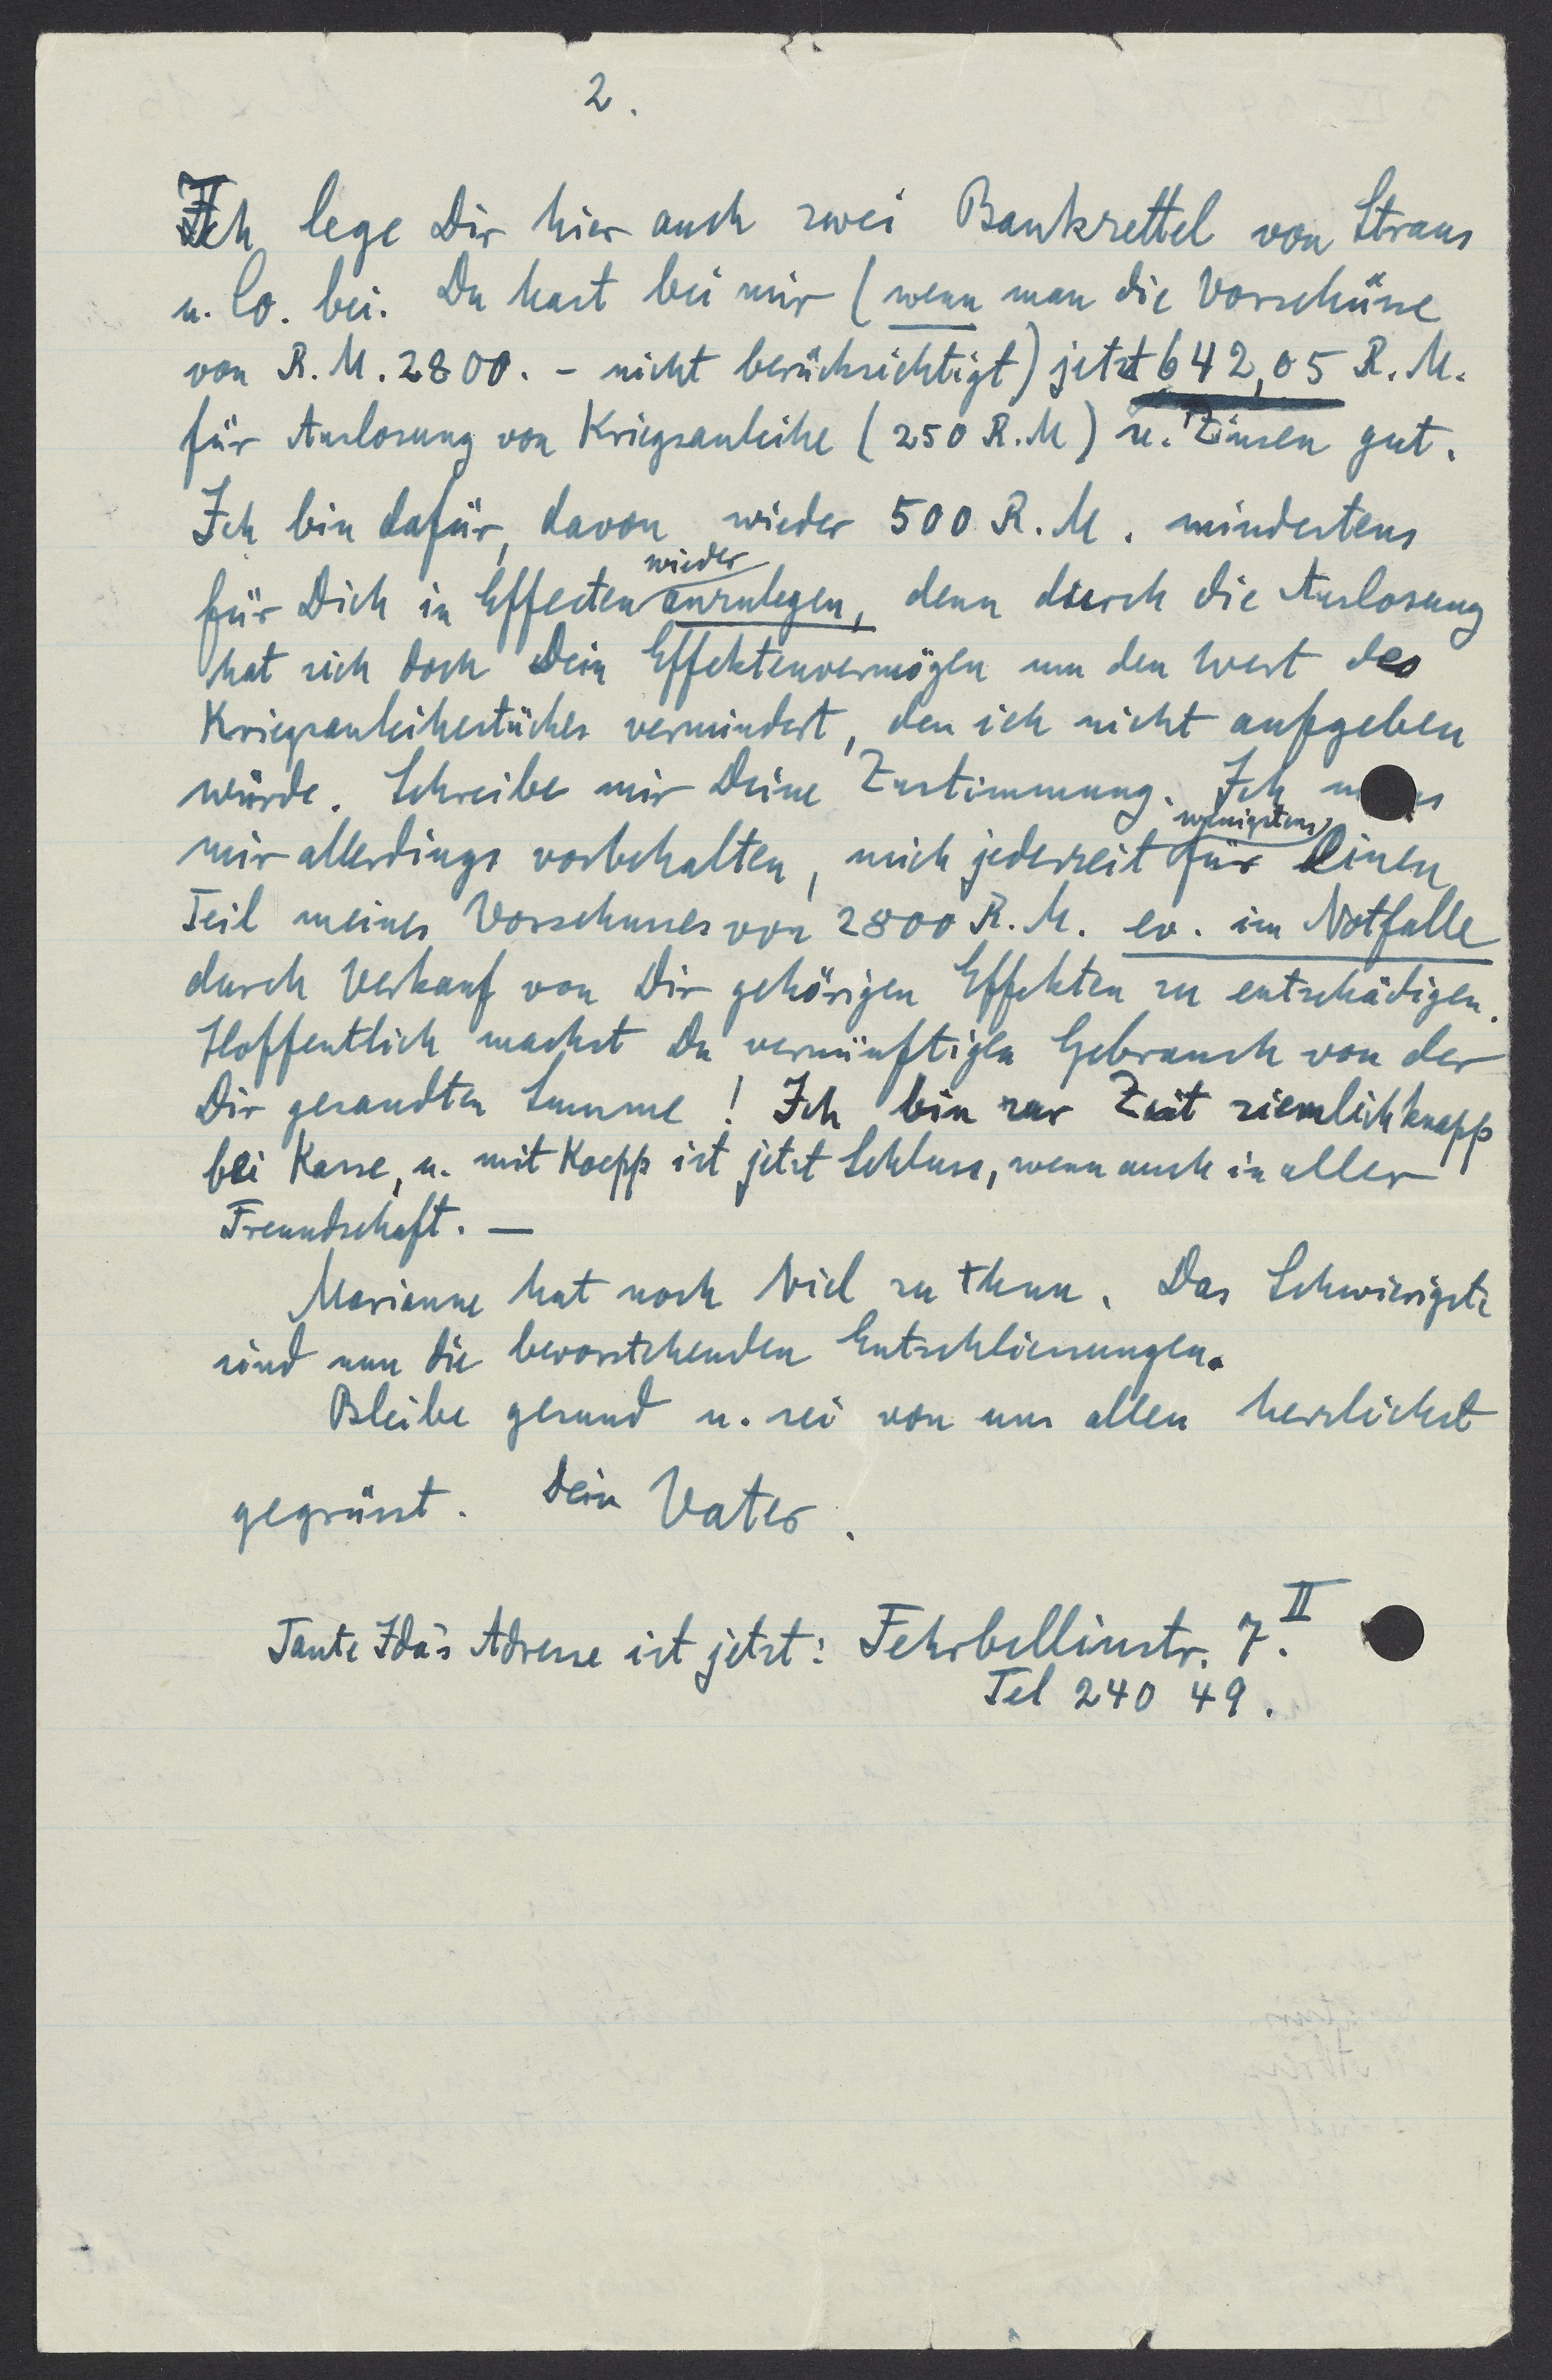 2.
Ich lege Dir hier auch zwei Bankzettel von Straus
u. Co. bei. Du hast bei mir (wenn man die Vorschüsse
von R. M. 2800. - nicht berücksichtigt) jetzt 642,05 R. M.
für Auslosung von Kriegsanleihe (250 R. M) u. Zinsen gut.
Ich bin dafür, davon wieder 500 R. M. mindestens
für Dich in Effecten wieder anzulegen, denn durch die Auslosung
hat sich doch Dein Effektenvermögen um den Wert des
Kriegsanleihestückes vermindert, den ich nicht aufgeben
würde. Schreibe mir Deine Zustimmung. Ich
mir allerdings vorbehalten, mich jederzeit wenigstens für einen
Teil meines Vorschusses von 2800 R. M. ev. im Notfalle
durch Verkauf von Dir gehörigen Effekten zu entschädigen.
Hoffentlich machst Du vernünftigen Gebrauch von der
Dir gesandten Summe! Ich bin zur Zeit ziemlich knapp
bei Kasse, u. mit Koepp ist jetzt Schluss, wenn auch in aller
Freundschaft. —
Marianne hat noch viel zu thun. Das Schwierigste
sind nun die bevorstehenden Entschliessungen.
Bleibe gesund u. sei von uns allen herzlichst
gegrüsst. Dein Vater.
Tante Ida's Adresse ist jetzt: Fehrbellinstr. 7. II
Tel 240 49.